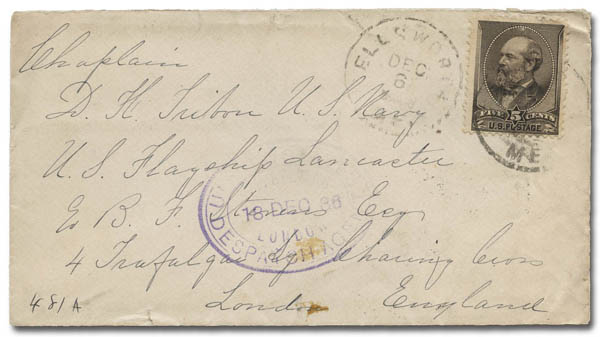 Chaplain
D. H. Tribou U.S. Navy
U.S. Flagship Lancaster
B. F. Stevens Esq
4 Trafalgar Sq. Charing Cross
London England
481A
ELLSWORTH
DEC
6
ME
FIVE 5 CENTS
U.S. POSTAGE
18 DEC 86
LONDON
DESPATCH AGENCY